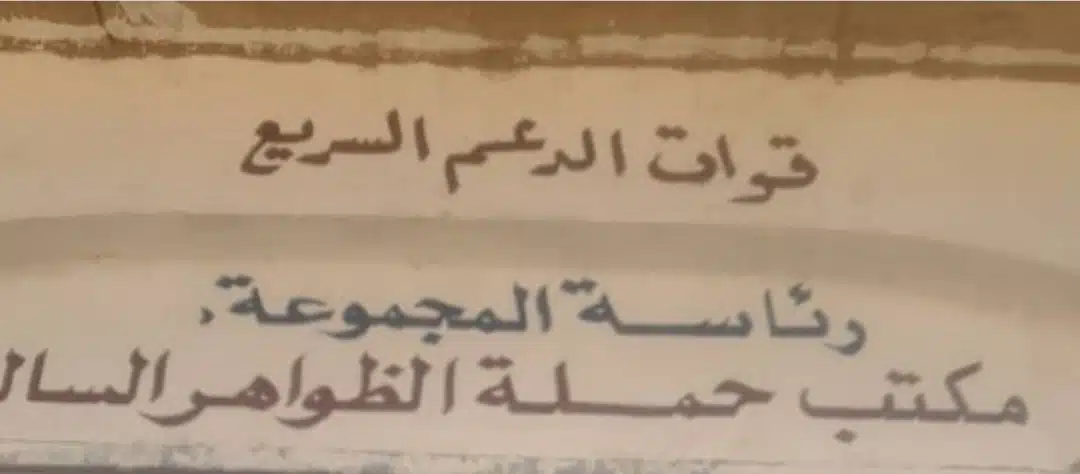 قوات الدعم السريع
رئاسة المجموعة،
مكتب حملة الظواهر السال